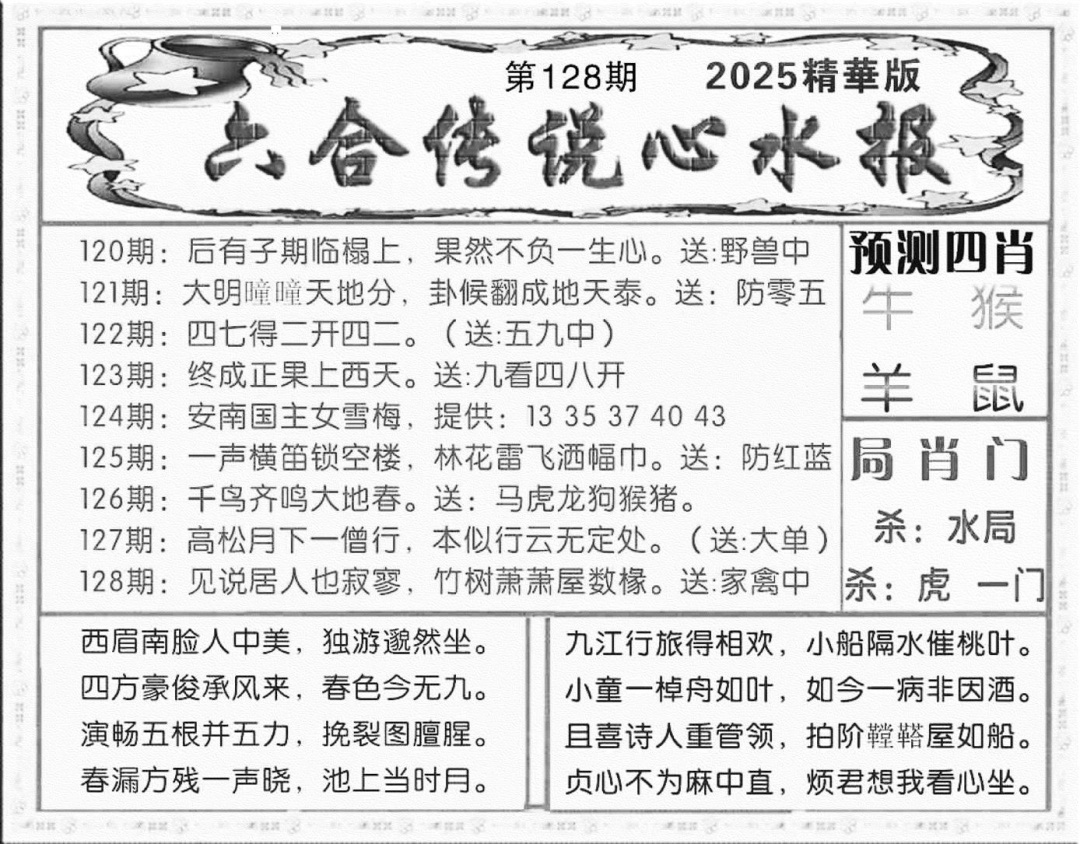 第128期 2025精華版
六合传说心水报
120期：后有子期临榻上，果然不负一生心。送:野兽中
121期：大明曈曈天地分，卦候翻成地天泰。送：防零五
122期：四七得二开四二。（送:五九中）
123期：终成正果上西天。送:九看四八开
124期：安南国主女雪梅，提供：13 35 37 40 43
125期：一声横笛锁空楼，林花雷飞洒幅巾。送：防红蓝
126期：千鸟齐鸣大地春。送：马虎龙狗猴猪。
127期：高松月下一僧行，本似行云无定处。（送:大单）
128期：见说居人也寂寥，竹树萧萧屋数椽。送:家禽中
预测四肖
牛 猴
羊 鼠
局肖门
杀：水局
杀：虎 一门
西眉南脸人中美，独游邈然坐。
四方豪俊承风来，春色今无九。
演畅五根并五力，挽裂图膻腥。
春漏方残一声晓，池上当时月。
九江行旅得相欢，小船隔水催桃叶。
小童一棹舟如叶，如今一病非因酒。
且喜诗人重管领，拍阶鞺鞳屋如船。
贞心不为麻中直，烦君想我看心坐。